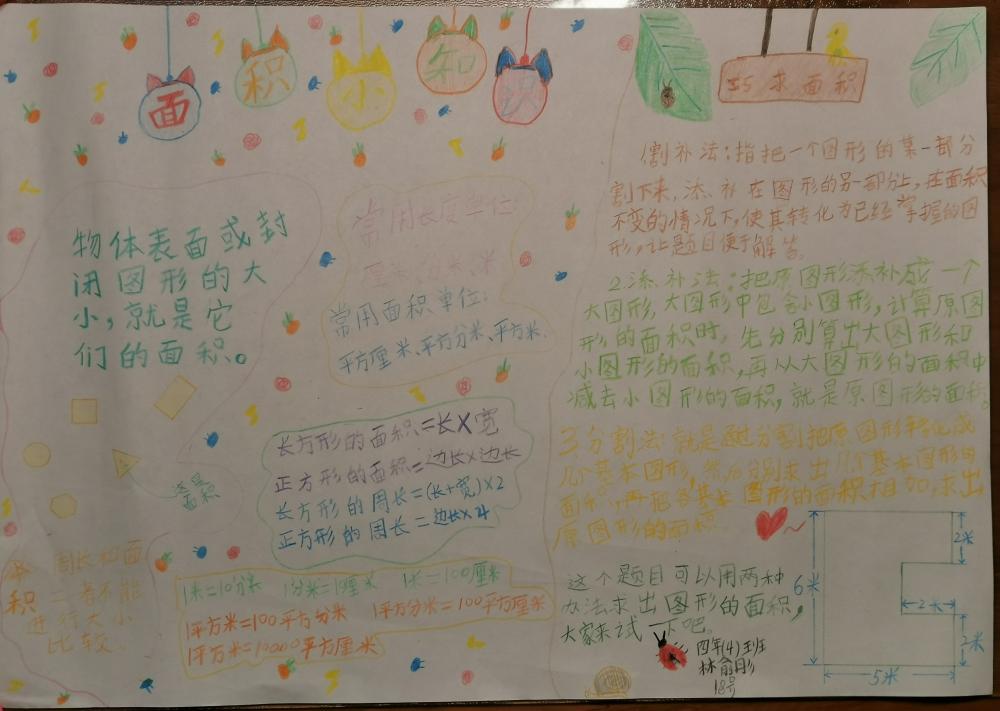 面积小知识
物体表面或封
闭图形的大
小，就是它
们的面积。
常用长度单位：
厘米、分米、米
常用面积单位：
平方厘米、平方分米、平方米、
长方形的面积=长×宽
正方形的面积=边长×边长
长方形的周长=(长+宽)×2
正方形的周长=边长×4
周长和面
积二者不能
进行大小
比较。
1米=10分米 1分米=1厘米 1米=100厘米
1平方米=100平方分米 1平方分米=100平方厘米
1平方米=10000平方厘米
巧求面积
1割补法：指把一个图形的某一部分
割下来，添补在图形的另一部分上，在面积
不变的情况下，使其转化为已经掌握的图
形，让题目便于解答。
2.添补法：把原图形添补成一个
大图形，大图形中包含小图形，计算原图
形的面积时，先分别算出大图形和
小图形的面积，再从大图形的面积中
减去小图形的面积，就是原图形的面积。
3.分割法：就是通过分割把原图形转化成
几个基本图形，然后分别求出几个基本图形的
面积，再把各基本图形的面积相加，求出
原图形的面积
这个题目可以用两种
办法求出图形的面积，
大家来试一下吧。
四年(4)班
18号
6米
2米
2米
2米
5米